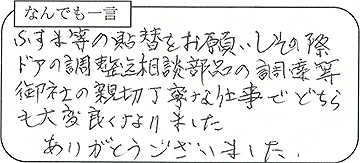 なんでも一言
ふすま等の貼替をお願いしその際
ドアの調整迄相談部品の調達等
御社の親切丁寧な仕事でどちら
も大変良くなりました
ありがとうございました。